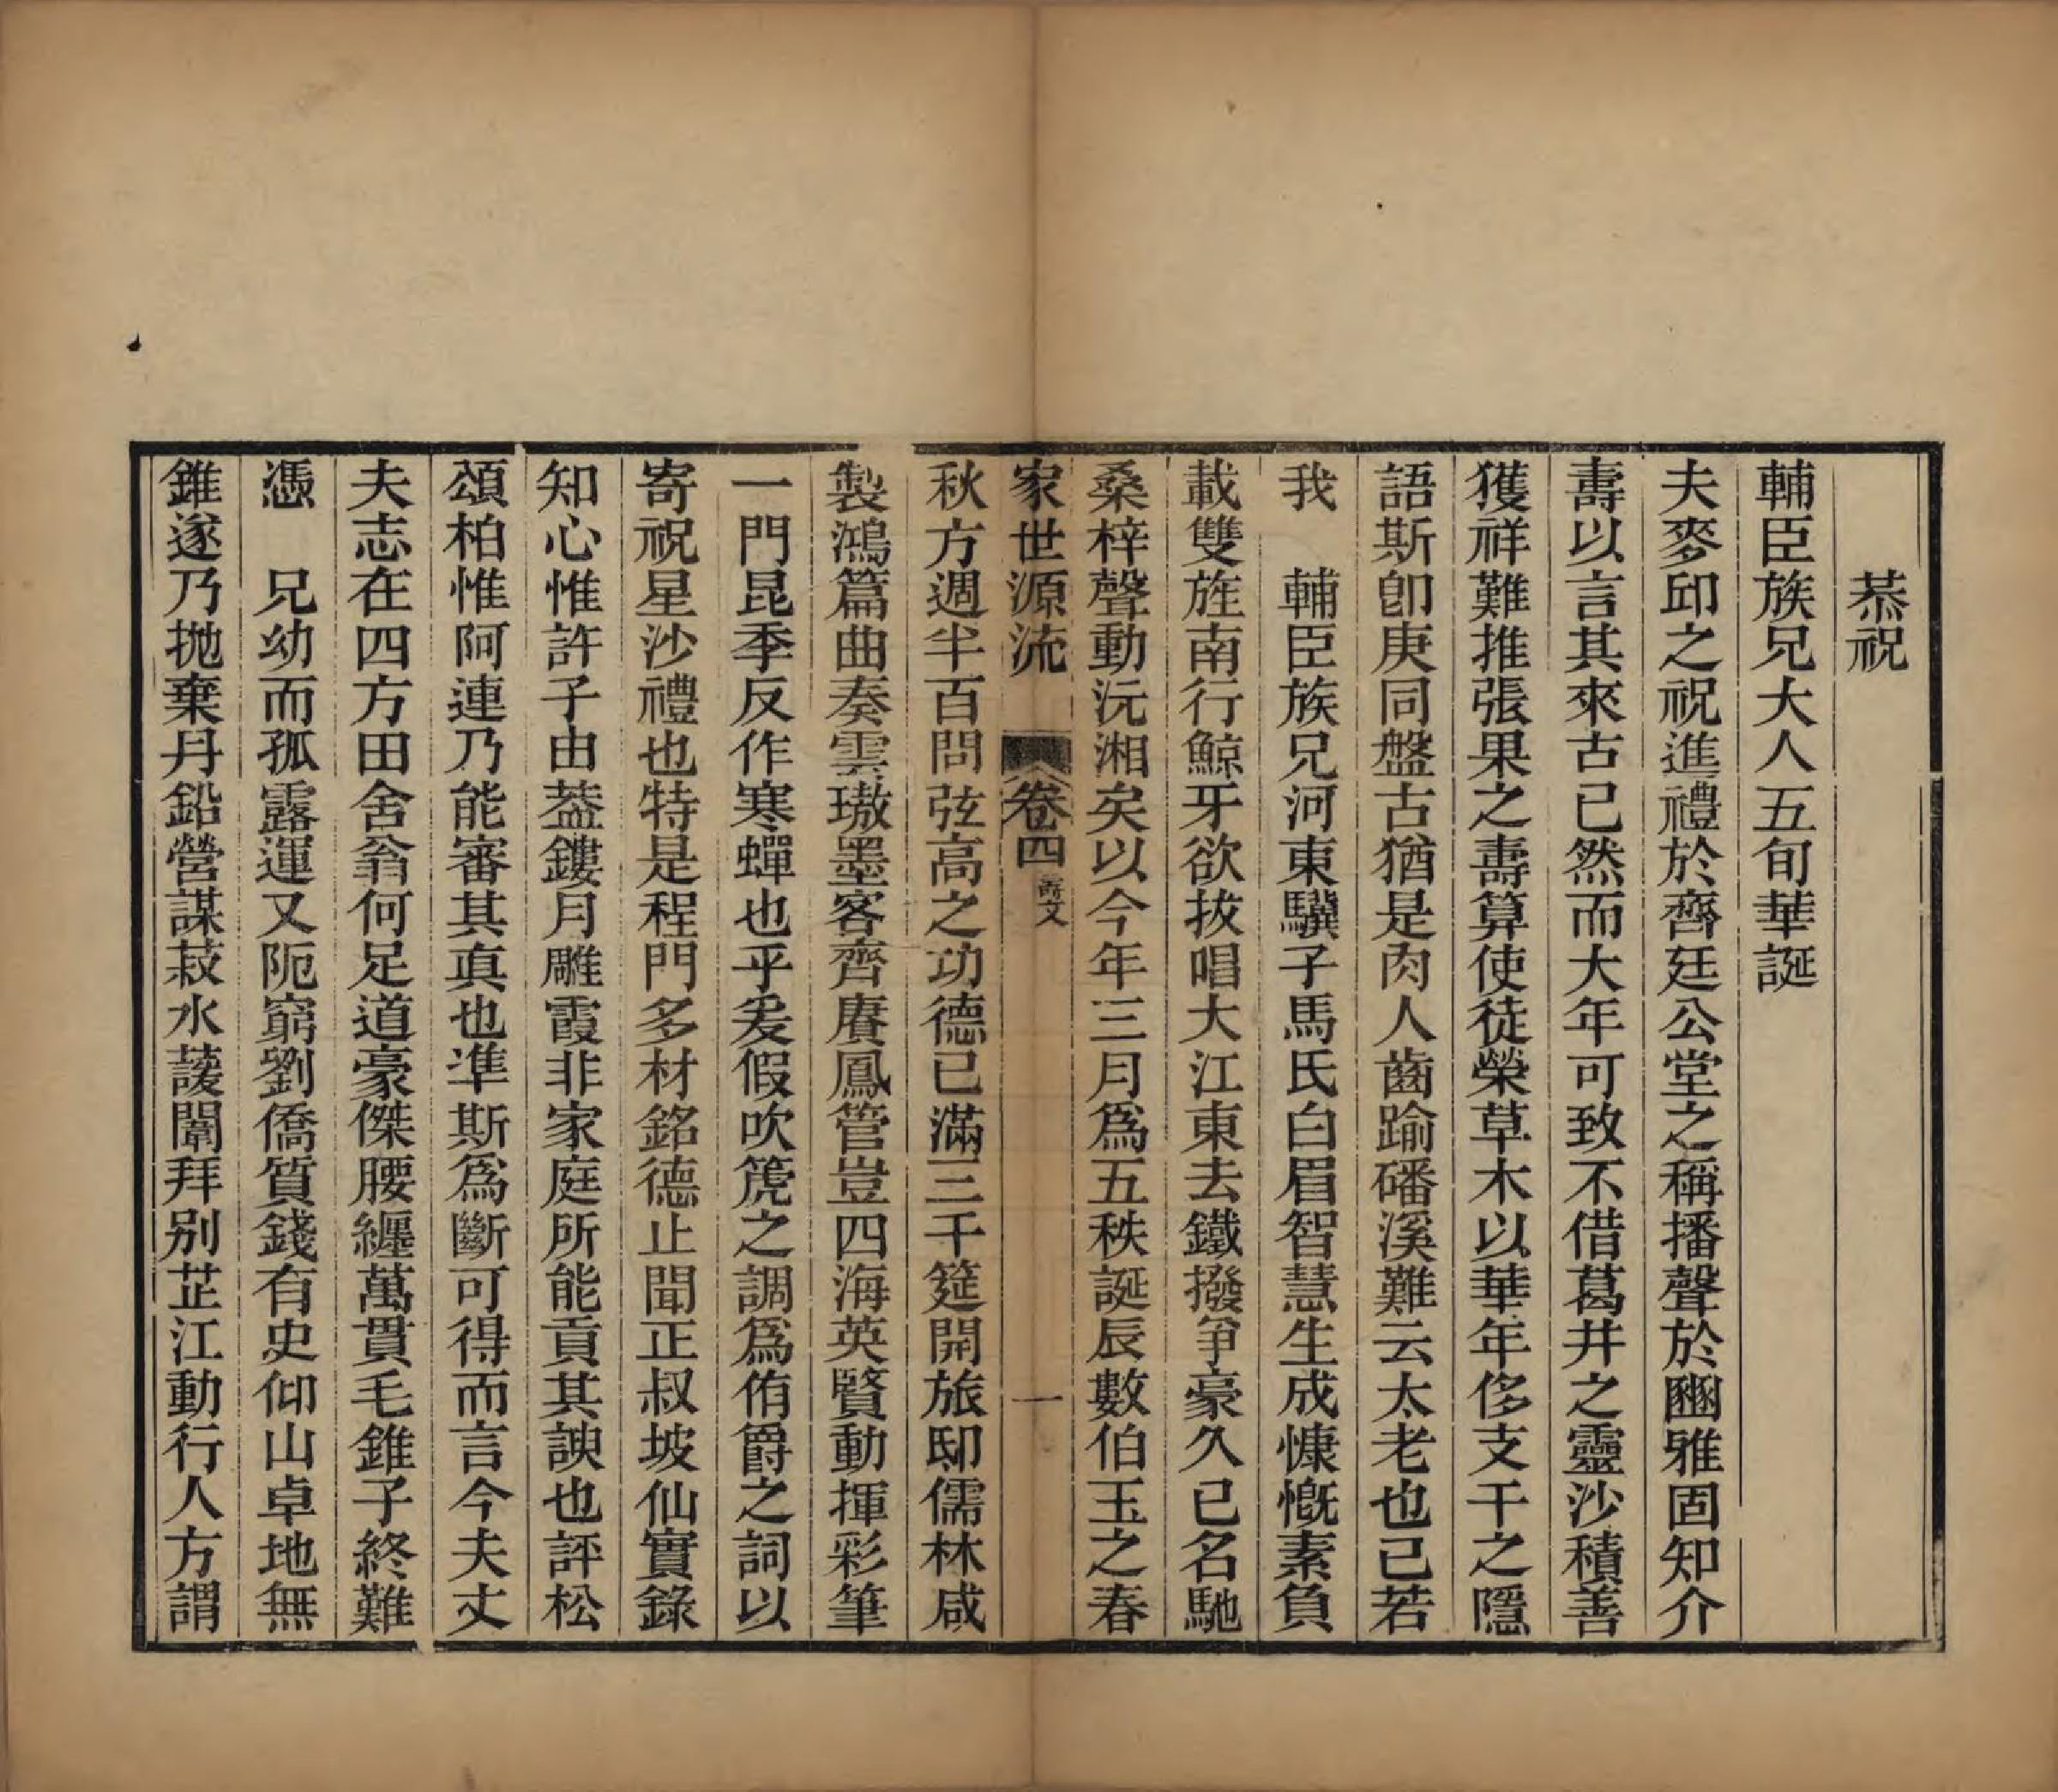 恭祝
輔臣族兄大人五旬華誕
夫麥邱之祝進禮於齊廷公堂之稱播聲於豳雅固知介
壽以言其來古已然而大年可致不借葛井之靈沙積善
獲祥難推張果之壽算使徒榮草木以華年侈支干之隱
語斯卽庚同盤古猶是肉人齒踰磻溪難云太老也已若
我　輔臣族兄河東驥子馬氏白眉智慧生成慷慨素負
載雙旌南行鯨牙欲拔唱大江東去鐵撥爭豪久已名馳
桑梓聲動沅湘矣以今年三月爲五秩誕辰數伯玉之春
家世源流　卷四 壽文　一
秋方週半百問弦高之功德已滿三千筵開旅邸儒林咸
製鴻篇曲奏雲璈墨客齊賡鳳管豈四海英賢動揮彩筆
一門昆季反作寒蟬也乎爰假吹篪之調爲侑爵之詞以
寄祝星沙禮也特是程門多材銘德止聞正叔坡仙實錄
知心惟許子由葢鏤月雕霞非家庭所能貢其諛也評松
頌柏惟阿連乃能審其眞也準斯爲斷可得而言今夫丈
夫志在四方田舍翁何足道豪傑腰纏萬貫毛錐子終難
憑　兄幼而孤露運又阨窮劉僑質錢有史仰山卓地無
錐遂乃拋棄丹鉛營謀菽水諼闈拜别芷江動行人方謂